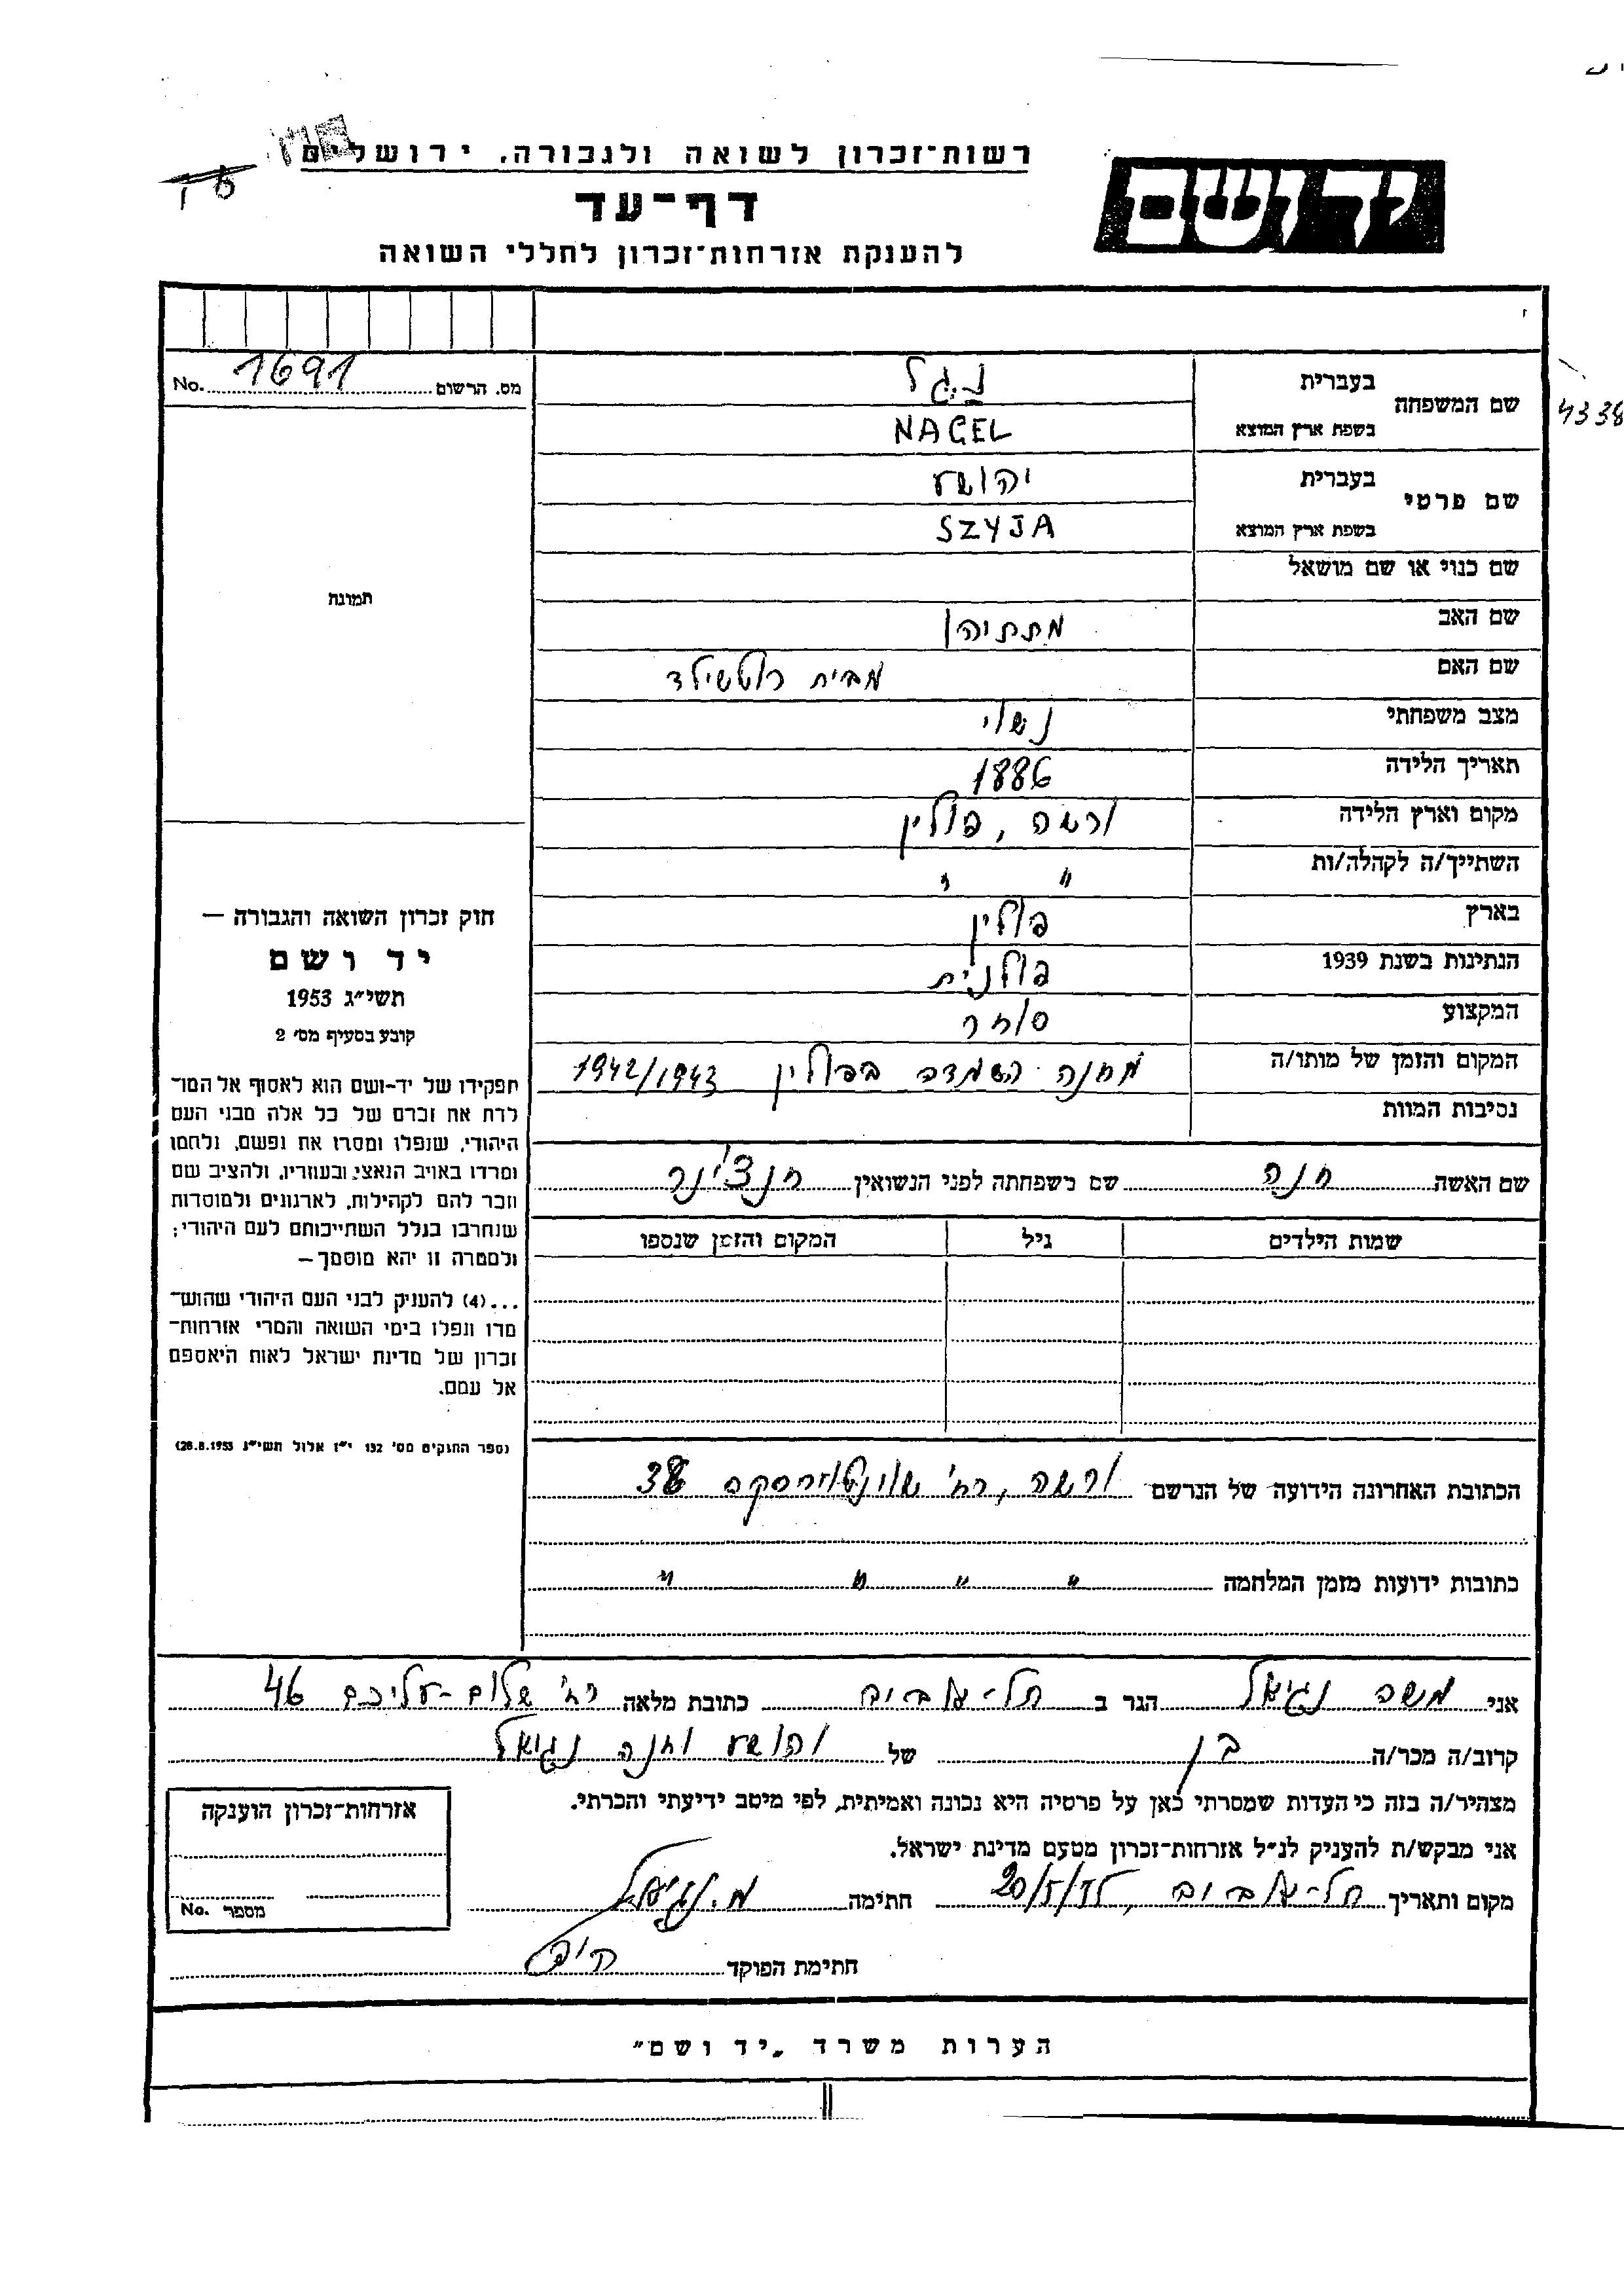 רשות־זכרון לשואה ולגבורה, ירושלים
יד ושם
דף־עד
להענקת אזרחות־זכרון לחללי השואה
מס. הרשום 1691 No.
4338
שם המשפחה בעברית נגל
בשפת ארץ המוצא NAGEL
שם פרטי בעברית יהושע
בשפת ארץ המוצא SZYJA
שם כנוי או שם מושאל
תמונה
שם האב מתתיהו
שם האם מבית רוטשילד
מצב משפחתי נשוי
תאריך הלידה 1886
מקום וארץ הלידה ורשה, פולין
השתייך/ה לקהלה/ות " "
בארץ פולין
הנתינות בשנת 1939 פולנית
המקצוע סוחר
המקום והזמן של מותו/ה מחנה השמדה בפולין 1942/1943
נסיבות המוות
שם האשה חנה שם משפחתה לפני הנשואין חנצ'ינר
שמות הילדים גיל המקום והזמן שנספו
הכתובת האחרונה הידועה של הנרשם ורשה, רח' שוינטוירסקה 38
כתובות ידועות מזמן המלחמה " " " "
חוק זכרון השואה והגבורה —
יד ושם
תשי"ג 1953
קובע בסעיף מס' 2
תפקידו של יד־ושם הוא לאסוף אל המו־
לדת את זכרם של כל אלה מבני העם
היהודי, שנפלו ומסרו את נפשם, נלחמו
ומרדו באויב הנאצי ובעוזריו, ולהציב שם
וזכר להם לקהילות, לארגונים ולמוסדות
שנחרבו בגלל השתייכותם לעם היהודי;
ולמטרה זו יהא מוסמך —
...(4) להעניק לבני העם היהודי שהוש־
מדו ונפלו בימי השואה והמרי אזרחות־
זכרון של מדינת ישראל לאות היאספם
אל עמם.
(ספר החוקים מס' 132 י"ז אלול תשי"ג 28.8.1953)
אני משה נגיאל הגר ב תל-אביב כתובת מלאה רח' שלום-עליכם 46
קרוב/ה מכר/ה בן של יהושע וחנה נגיאל
מצהיר/ה בזה כי העדות שמסרתי כאן על פרטיה היא נכונה ואמיתית, לפי מיטב ידיעתי והכרתי.
אני מבקש/ת להעניק לנ"ל אזרחות־זכרון מטעם מדינת ישראל.
מקום ותאריך תל-אביב, חתימה מ. נגיאל
חתימת הפוקד
אזרחות־זכרון הוענקה
מספר No.
הערות משרד „יד ושם"